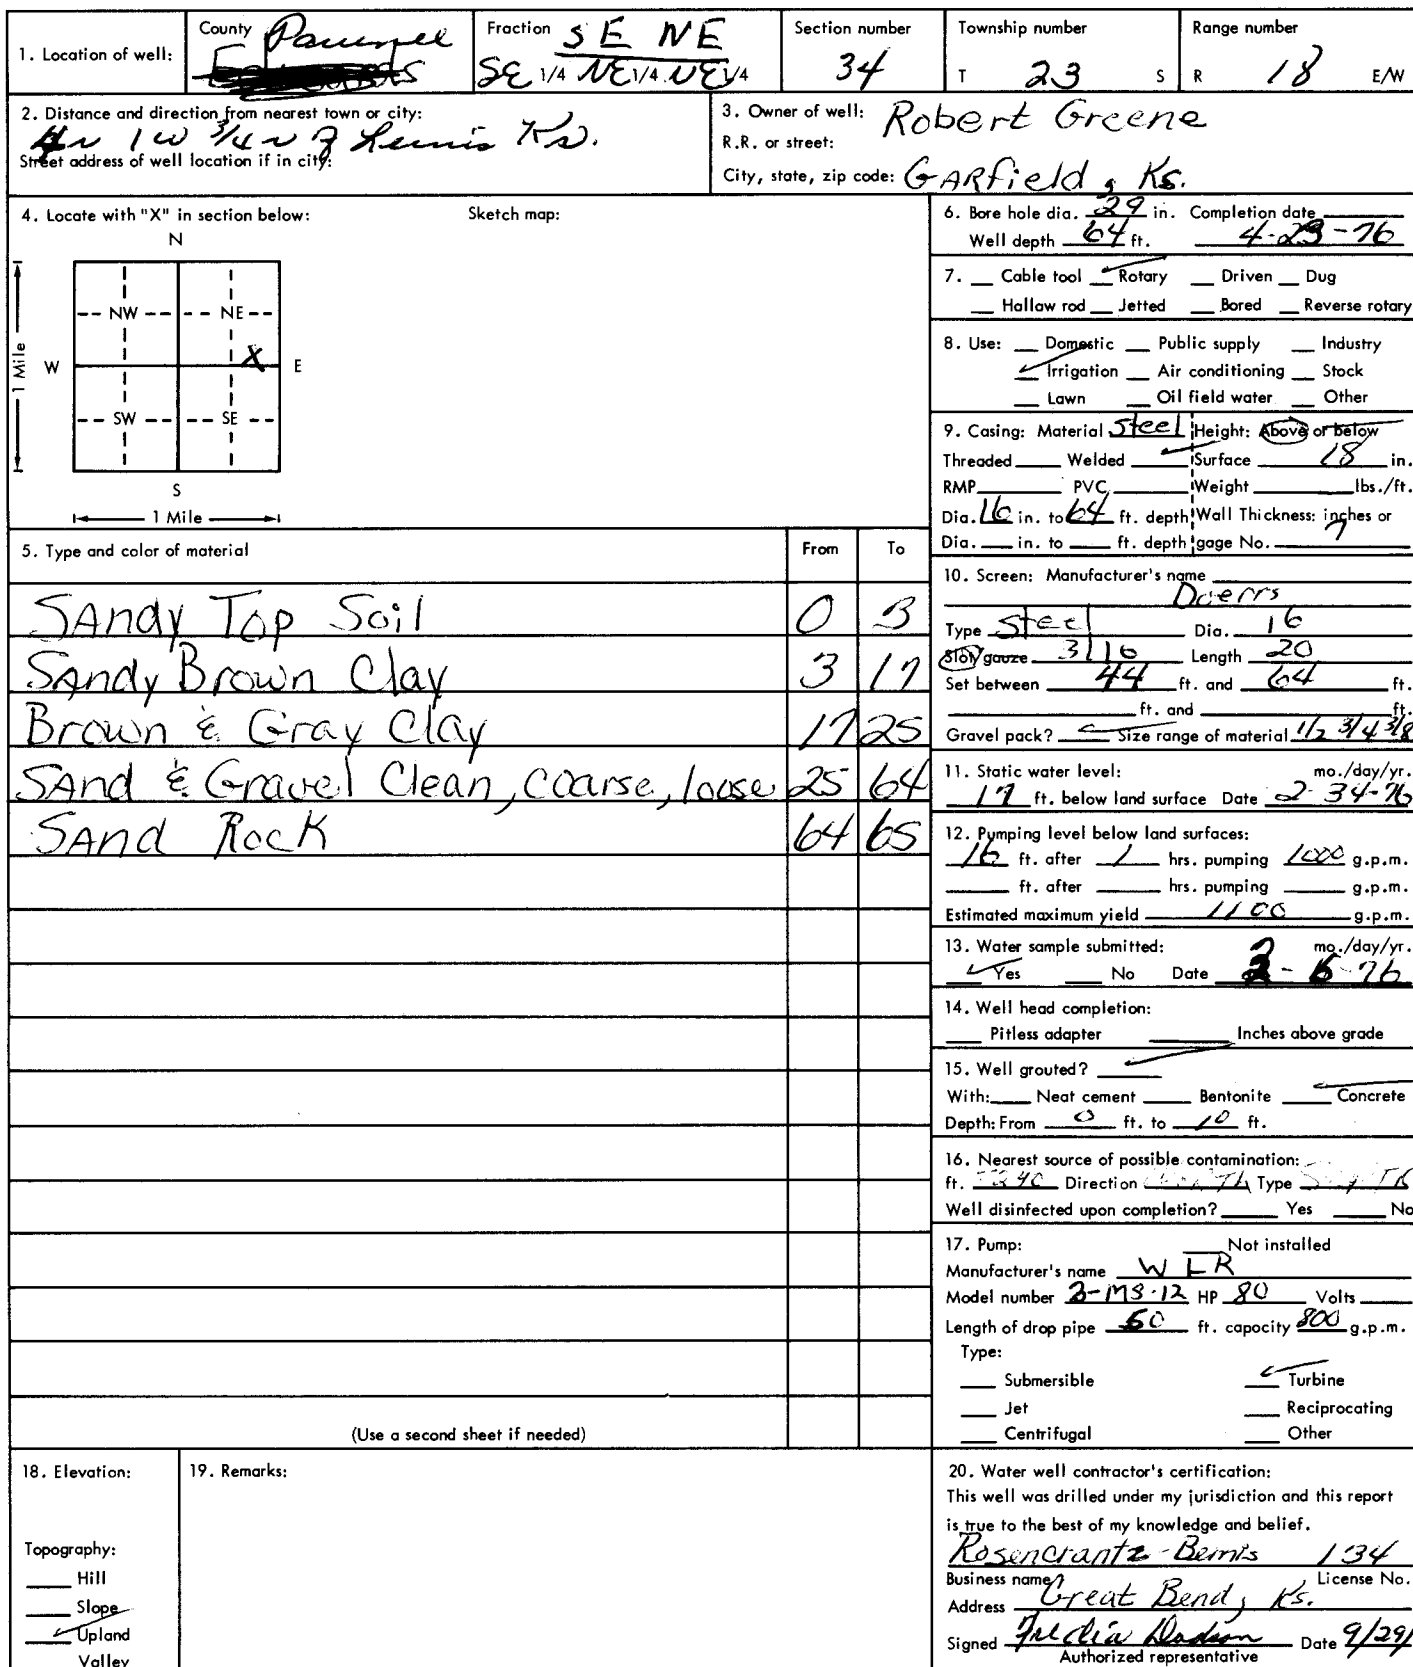 1. Location of well:
County Pawnee
Fraction SE NE
SE 1/4 NE 1/4 NE 1/4
Section number
34
Township number
T 23 S
Range number
R 18 E/W
2. Distance and direction from nearest town or city:
4 N 1 W 3/4 N of Lewis Ks.
Street address of well location if in city:
3. Owner of well: Robert Greene
R.R. or street:
City, state, zip code: GARfield, Ks.
4. Locate with "X" in section below: Sketch map:
N
NW NE
1 Mile W X E
SW SE
S
1 Mile
5. Type and color of material From To
SAndy Top Soil 0 3
SAndy Brown Clay 3 17
Brown & Gray Clay 17 25
SAnd & Gravel Clean, coarse, loose 25 64
SAnd Rock 64 65
(Use a second sheet if needed)
6. Bore hole dia. 29 in. Completion date
Well depth 64 ft. 4-23-76
7. Cable tool ✓ Rotary Driven Dug
Hallaw rod Jetted Bored Reverse rotary
8. Use: Domestic Public supply Industry
✓ Irrigation Air conditioning Stock
Lawn Oil field water Other
9. Casing: Material Steel Height: Above or below
Threaded Welded ✓ Surface 18 in.
RMP PVC Weight lbs./ft.
Dia. 16 in. to 64 ft. depth Wall Thickness: inches or
Dia. in. to ft. depth gage No. 7
10. Screen: Manufacturer's name
Doerrs
Type Steel Dia. 16
Slot/gauze 3/16 Length 20
Set between 44 ft. and 64 ft.
ft. and ft.
Gravel pack? ✓ Size range of material 1/2 3/4 3/8
11. Static water level: mo./day/yr.
17 ft. below land surface Date 2-34-76
12. Pumping level below land surfaces:
16 ft. after 1 hrs. pumping 1000 g.p.m.
ft. after hrs. pumping g.p.m.
Estimated maximum yield 1100 g.p.m.
13. Water sample submitted: mo./day/yr.
✓ Yes No Date 2-6-76
14. Well head completion:
Pitless adapter Inches above grade
15. Well grouted? ✓
With: Neat cement Bentonite ✓ Concrete
Depth: From 0 ft. to 10 ft.
16. Nearest source of possible contamination:
ft. Direction Type
Well disinfected upon completion? Yes No
17. Pump: Not installed
Manufacturer's name WLR
Model number 3-MS-12 HP 80 Volts
Length of drop pipe 50 ft. capocity 800 g.p.m.
Type:
Submersible ✓ Turbine
Jet Reciprocating
Centrifugal Other
18. Elevation:
Topography:
Hill
Slope
✓ Upland
Valley
19. Remarks:
20. Water well contractor's certification:
This well was drilled under my jurisdiction and this report
is true to the best of my knowledge and belief.
Rosencrantz-Bemis 134
Business name License No.
Address Great Bend, Ks.
Signed Date 9/29/
Authorized representative